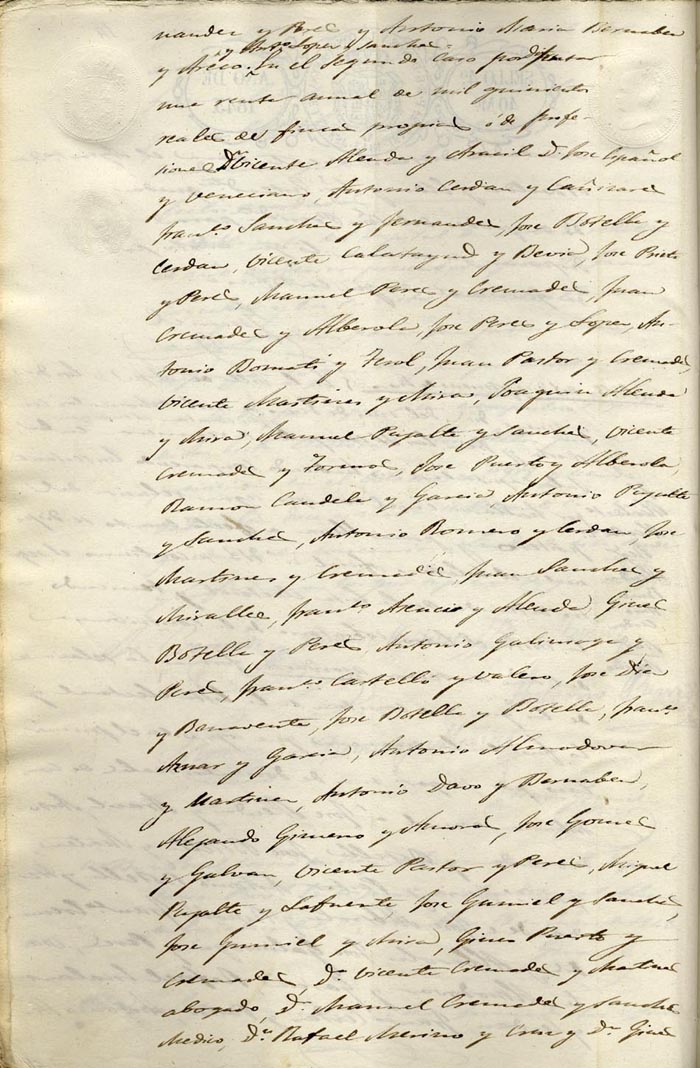 nandez y Perez y Antonio Maria Bernabeu
y Anto. Lopez y Sanchez
y Azeco. En el segundo caso por disfrutar
una renta annal de mil quinientos
reales de fincas propias ó de profe-
siones Dn. Vicente Alenda y Aracil D. Jose Español
y Veneciano, Antonio Cerdan y Cañizares
Franco. Sanchez y Fernandez, Jose Botella y
Cerdan, Vicente Calatayud y Devia, Jose Prieto
y Perez, Manuel Perez y Cremades, Juan
Cremades y Alberola, Jose Perez y Lopez, An-
tonio Bornati y Ferol, Juan Pastor y Cremades,
Vicente Martines y Mira, Joaquin Alenda
y Mira, Manuel Pujalte y Sanchez, Vicente
Cremades y Jose Puerto y Alberola,
Ramon Candela y Garcia, Antonio Pujalte
y Sanchez, Antonio Romero y Cerdan, Jose
Martines y Cremades, Juan Sanchez y
Miralles, Franco. Asencio y Alenda, Gines
Botella y Perez, Antonio Galinsoga y
Perez, Franco. Castelló y Valero, Jose Diez
y Banavente, Jose Botella y Botella, Franco.
Aznar y Garcia, Antonio Almodovar
y Martinez, Antonio Davo y Bernabeu,
Alejando Gimeno y Amoros, Jose Gomez
y Galvan, Vicente Pastor y Perez, Miguel
Pujalte y Lafuente, Jose Gumiel y Sanchez,
Jose Gumiel y Mira, Gines Puerto y
Cremades, Dn. Vicente Cremades y Martinez
abogado, Dn. Manuel Cremades y Sanchez
Medico, Dn. Rafael Merino y Cruz y Dn. Gines